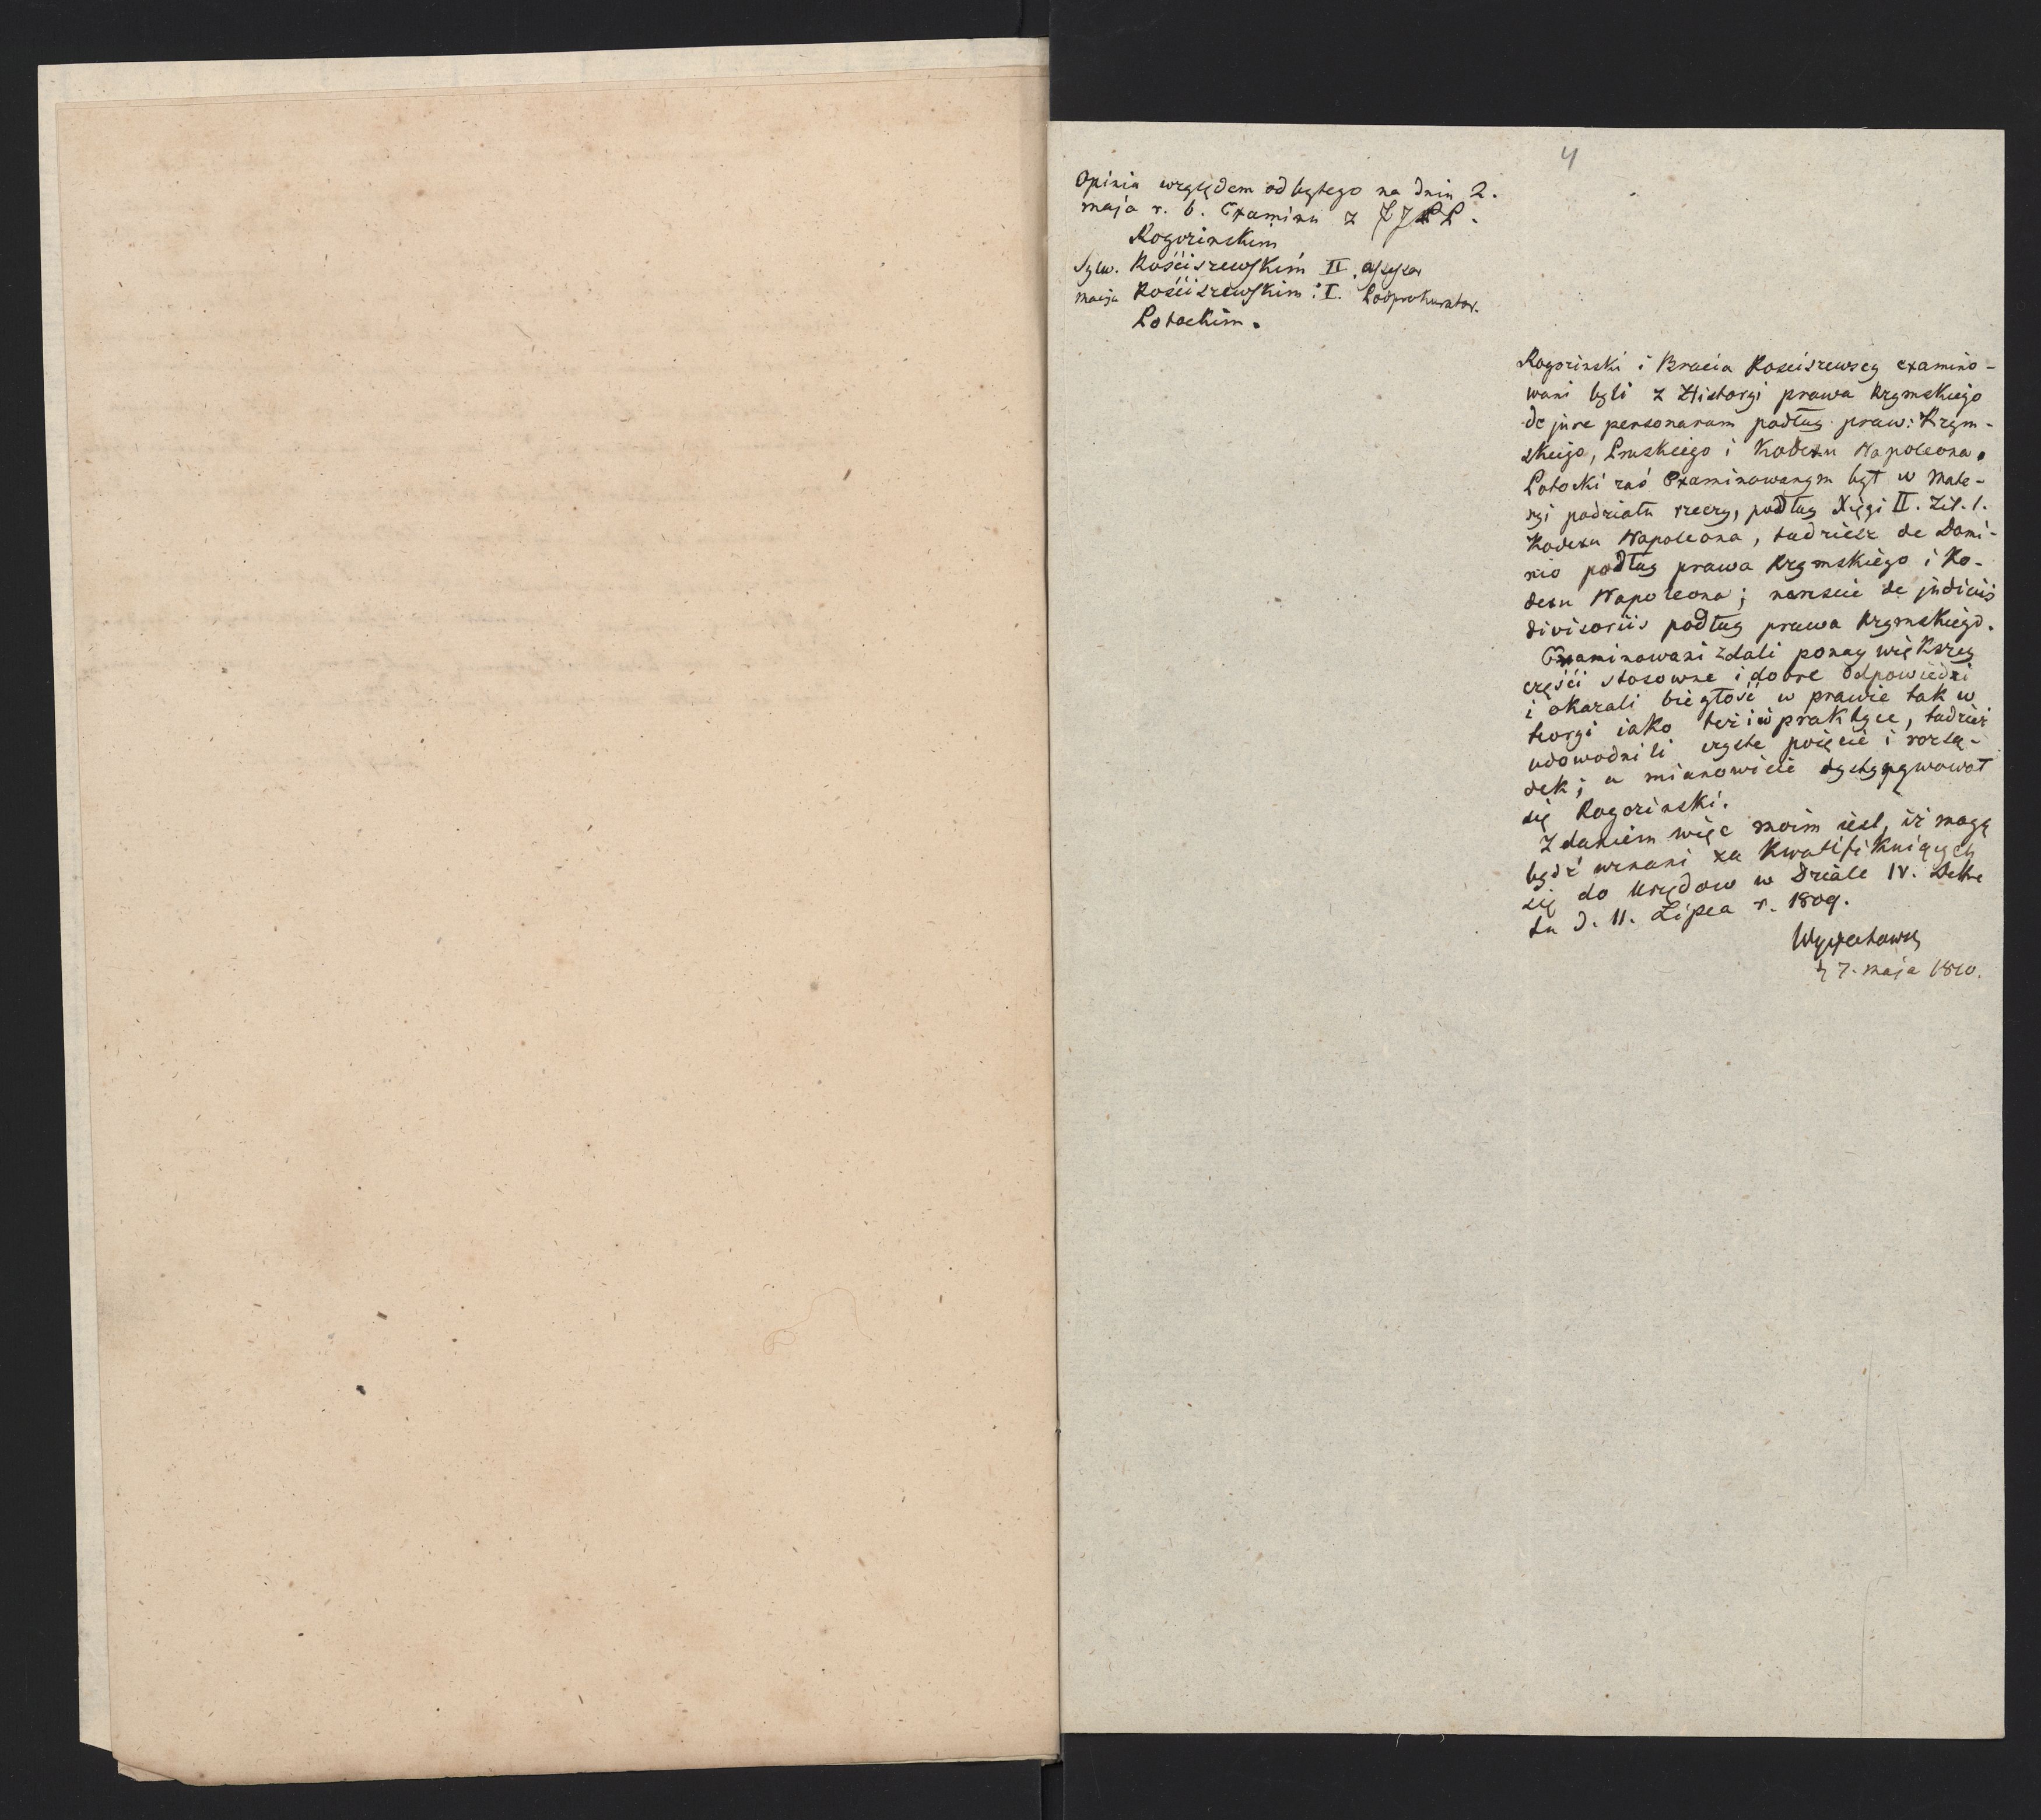 4
Opinia względem odbytego na dniu 2.
maja r. b. Examinu z JJPP.
Rogozinskim
Sylw. Kościszewskim II. assessor
Macija Kościszewskim I. Podprokurator.
Potockim.
Rogozinski i Bracia Kosciszewscy examino-
wani byli z Historyi prawa Rzymskiego
de jure personarum podług praw: Rzym-
skiego, Pruskiego i Kodexu Napoleona.
Potocki zaś Examinowanym był w Mate-
ryi podziału rzeczy, podług Xięgi II. Tit. I.
Kodexu Napoleona, tudzież de Domi-
nio podług prawa Rzymskiego i Ko-
dexu Napoleona; nareście de judiciis
divisoriis podług prawa Rzymskiego.
Examinowani zdali ponay większey
części stosowne i dobre odpowiedzi
i okazali biegłość w prawie tak w
teoryi iako też i w praktyce, tudzież
udowodnili czyste poięcie i rozsą-
dek; a mianowicie dystyngwował
się Rogozinski.
Zdaniem więc moim iest, iż mogą
bydź uznani za kwalifikuiących
się do urzędow w Dziale IV. Dekre
tu d. 11. Lipca r. 1809.
7. maja 1810.